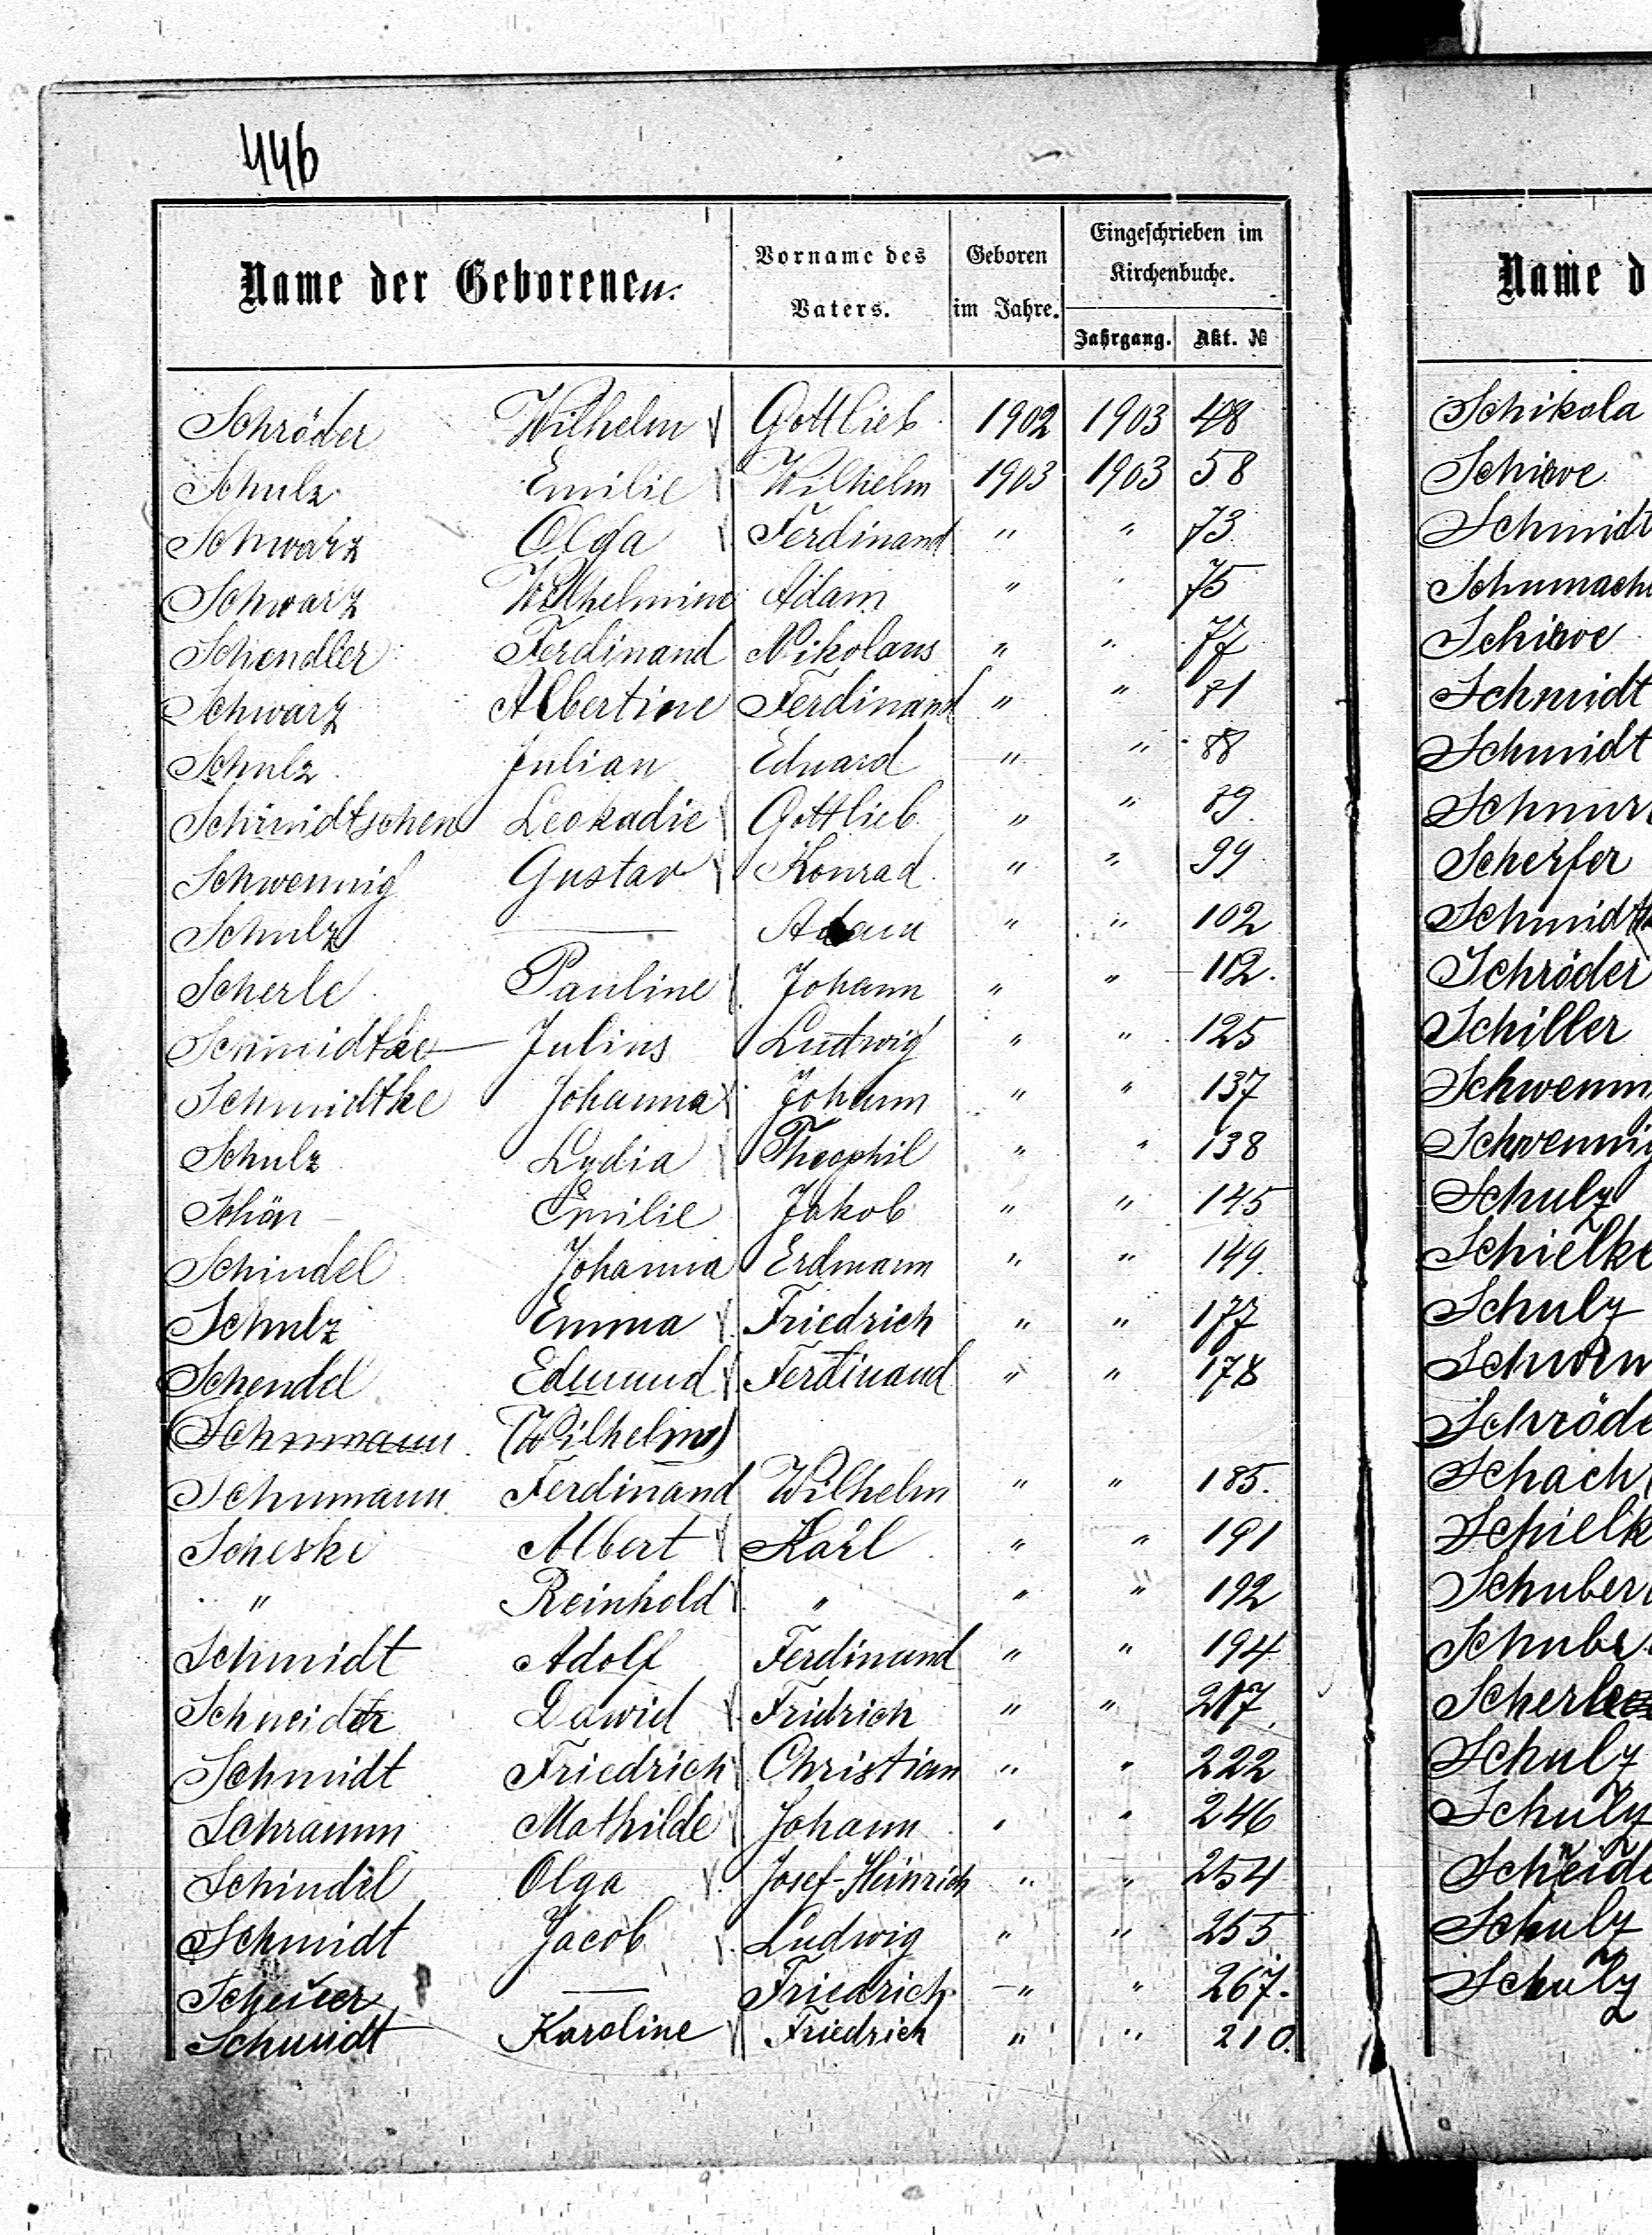 446
Name der Geborenen. Vorname des Vaters. Geboren im Jahre. Eingeschrieben im Kirchenbuche. Jahrgang. Akt. №
Schröder Wilhelm Gottlieb 1902 1903 48
Schulz Emilie Wilhelm 1903 1903 58
Schwarz Olga Ferdinand " " 73
Schwarz Wilhelmine Adam " " 75
Schendler Ferdinand Nikolaus " " 77
Schwarz Albertine Ferdinand " " 81
Schulz Julian Eduard " " 88
Schmidtschen Leokadie Gottlieb " " 89.
Schwennig Gustav Konrad " " 99
Schulz — Adam " " 102
Scherle Pauline Johann " " 112.
Schmidtke Julius Ludwig " " 125
Schmidtke Johanna Johann " " 137
Schulz Lydia Theophil " " 138
Schön Emilie Jakob " " 145
Schindel Johanna Erdmann " " 149
Schulz Emma Friedrich " " 177
Schendel Edmund Ferdinand " " 178
(Schumann (Wilhelm)
Schumann Ferdinand Wilhelm " " 185.
Scheske Albert Karl " " 191
" Reinhold " " " 192
Schmidt Adolf Ferdinand " " 194
Schneider Dawid Fridrich " " 217.
Schmidt Friedrich Christian " " 222
Schramm Mathilde Johann " " 246
Schindel Olga Josef-Heinrich " " 254
Schmidt Jacob Ludwig " " 255
— Friedrich " " 267.
Schmidt Karoline Friedrich " " 210.
Name d
Schikola
Schirve
Schmidt
Schumach
Schirve
Schmidt
Schmidt
Schnur
Scherfer
Schmidt
Schröder
Schiller
Schwenn
Schwennig
Schulz
Schielke
Schulz
Schröde
Schach
Schielk
Schuber
Schube
Scherle
Schulz
Schulz
Scheide
Schulz
Schulz